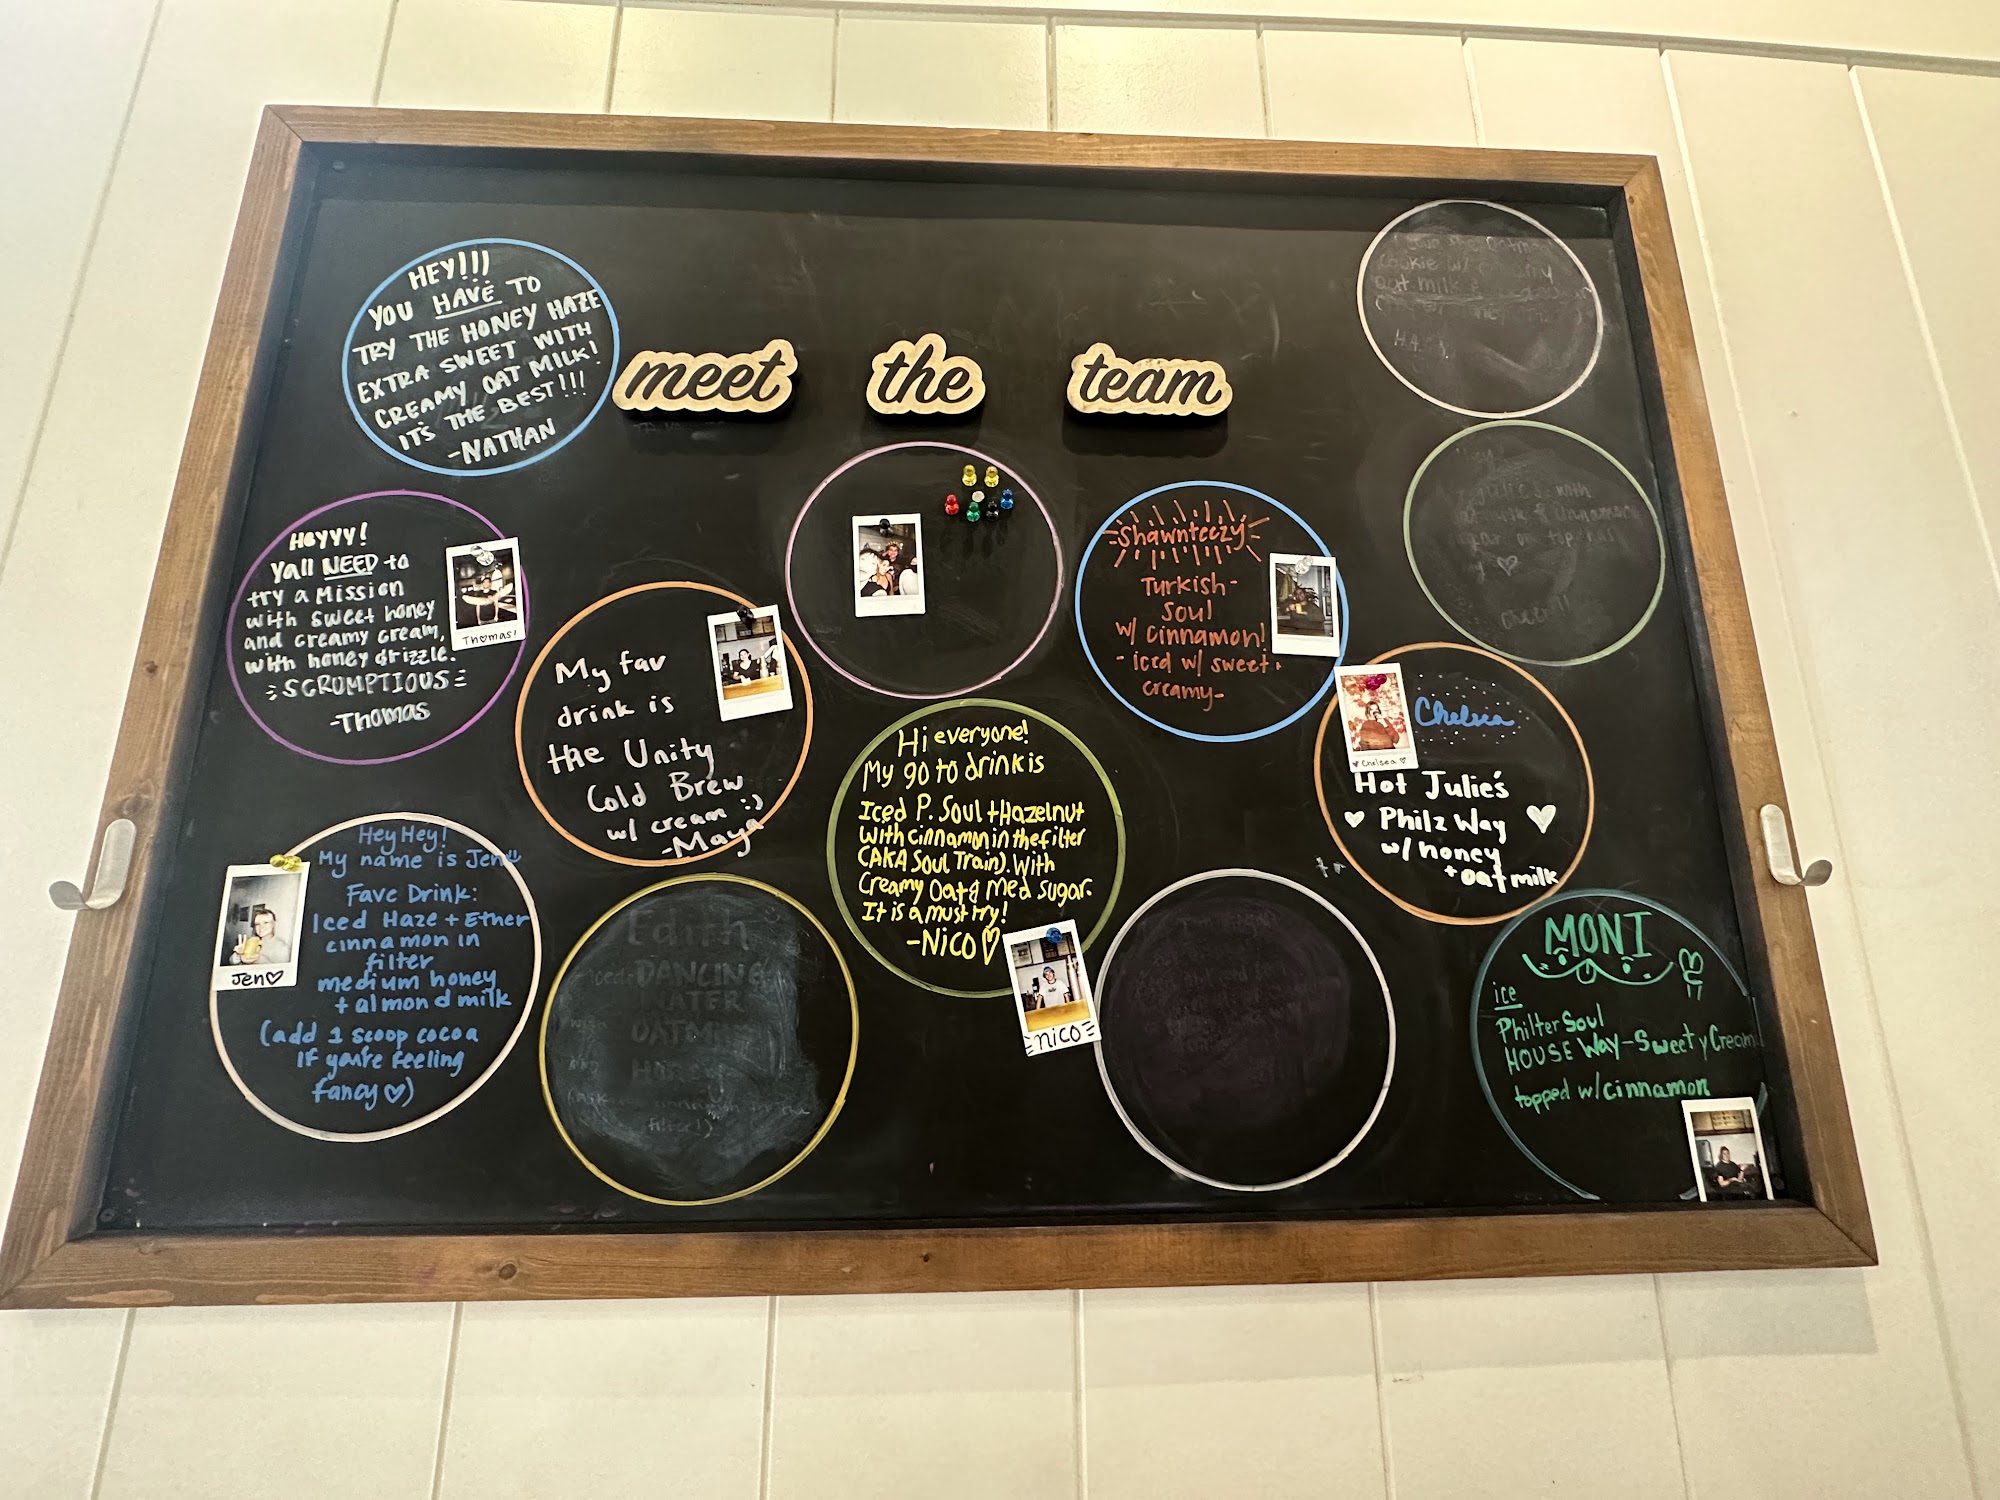 meet the team
HEY!!!
YOU HAVE TO
TRY THE HONEY HAZE
EXTRA SWEET WITH
CREAMY OAT MILK!
IT'S THE BEST!!!
-NATHAN
Heyyy!
Yall NEED to
try a Mission
with sweet honey
and creamy cream,
with honey drizzle.
SCRUMPTIOUS
-Thomas
Thomas!
My fav
drink is
the Unity
Cold Brew
w/ cream :)
-Maya
Hey Hey!
My name is Jen
Fave Drink:
Iced Haze + Ether
cinnamon in
filter
medium honey
+ almond milk
(add 1 scoop cocoa
if you're feeling
fancy ♡)
Jen♡
Edith
Iced DANCING
WATER
OATMI
HON
filter!)
Hi everyone!
My go to drink is
Iced P. Soul + Hazelnut
with cinnamon in the filter
(AKA Soul Train). With
Creamy Oat & Med sugar.
It is a must try!
-Nico♡
=nico=
Shawnteezy
Turkish-
Soul
w/ cinnamon!
- iced w/ sweet +
creamy-
oat milk &
Hey
with
cinnamon
on top
Chelsea
Hot Julie's
♥ Philz Way ♥
w/ honey
+ oat milk
♥ Chelsea ♡
MONI
ice
Philter Soul
HOUSE Way - Sweet y Cream
topped w/ cinnamon